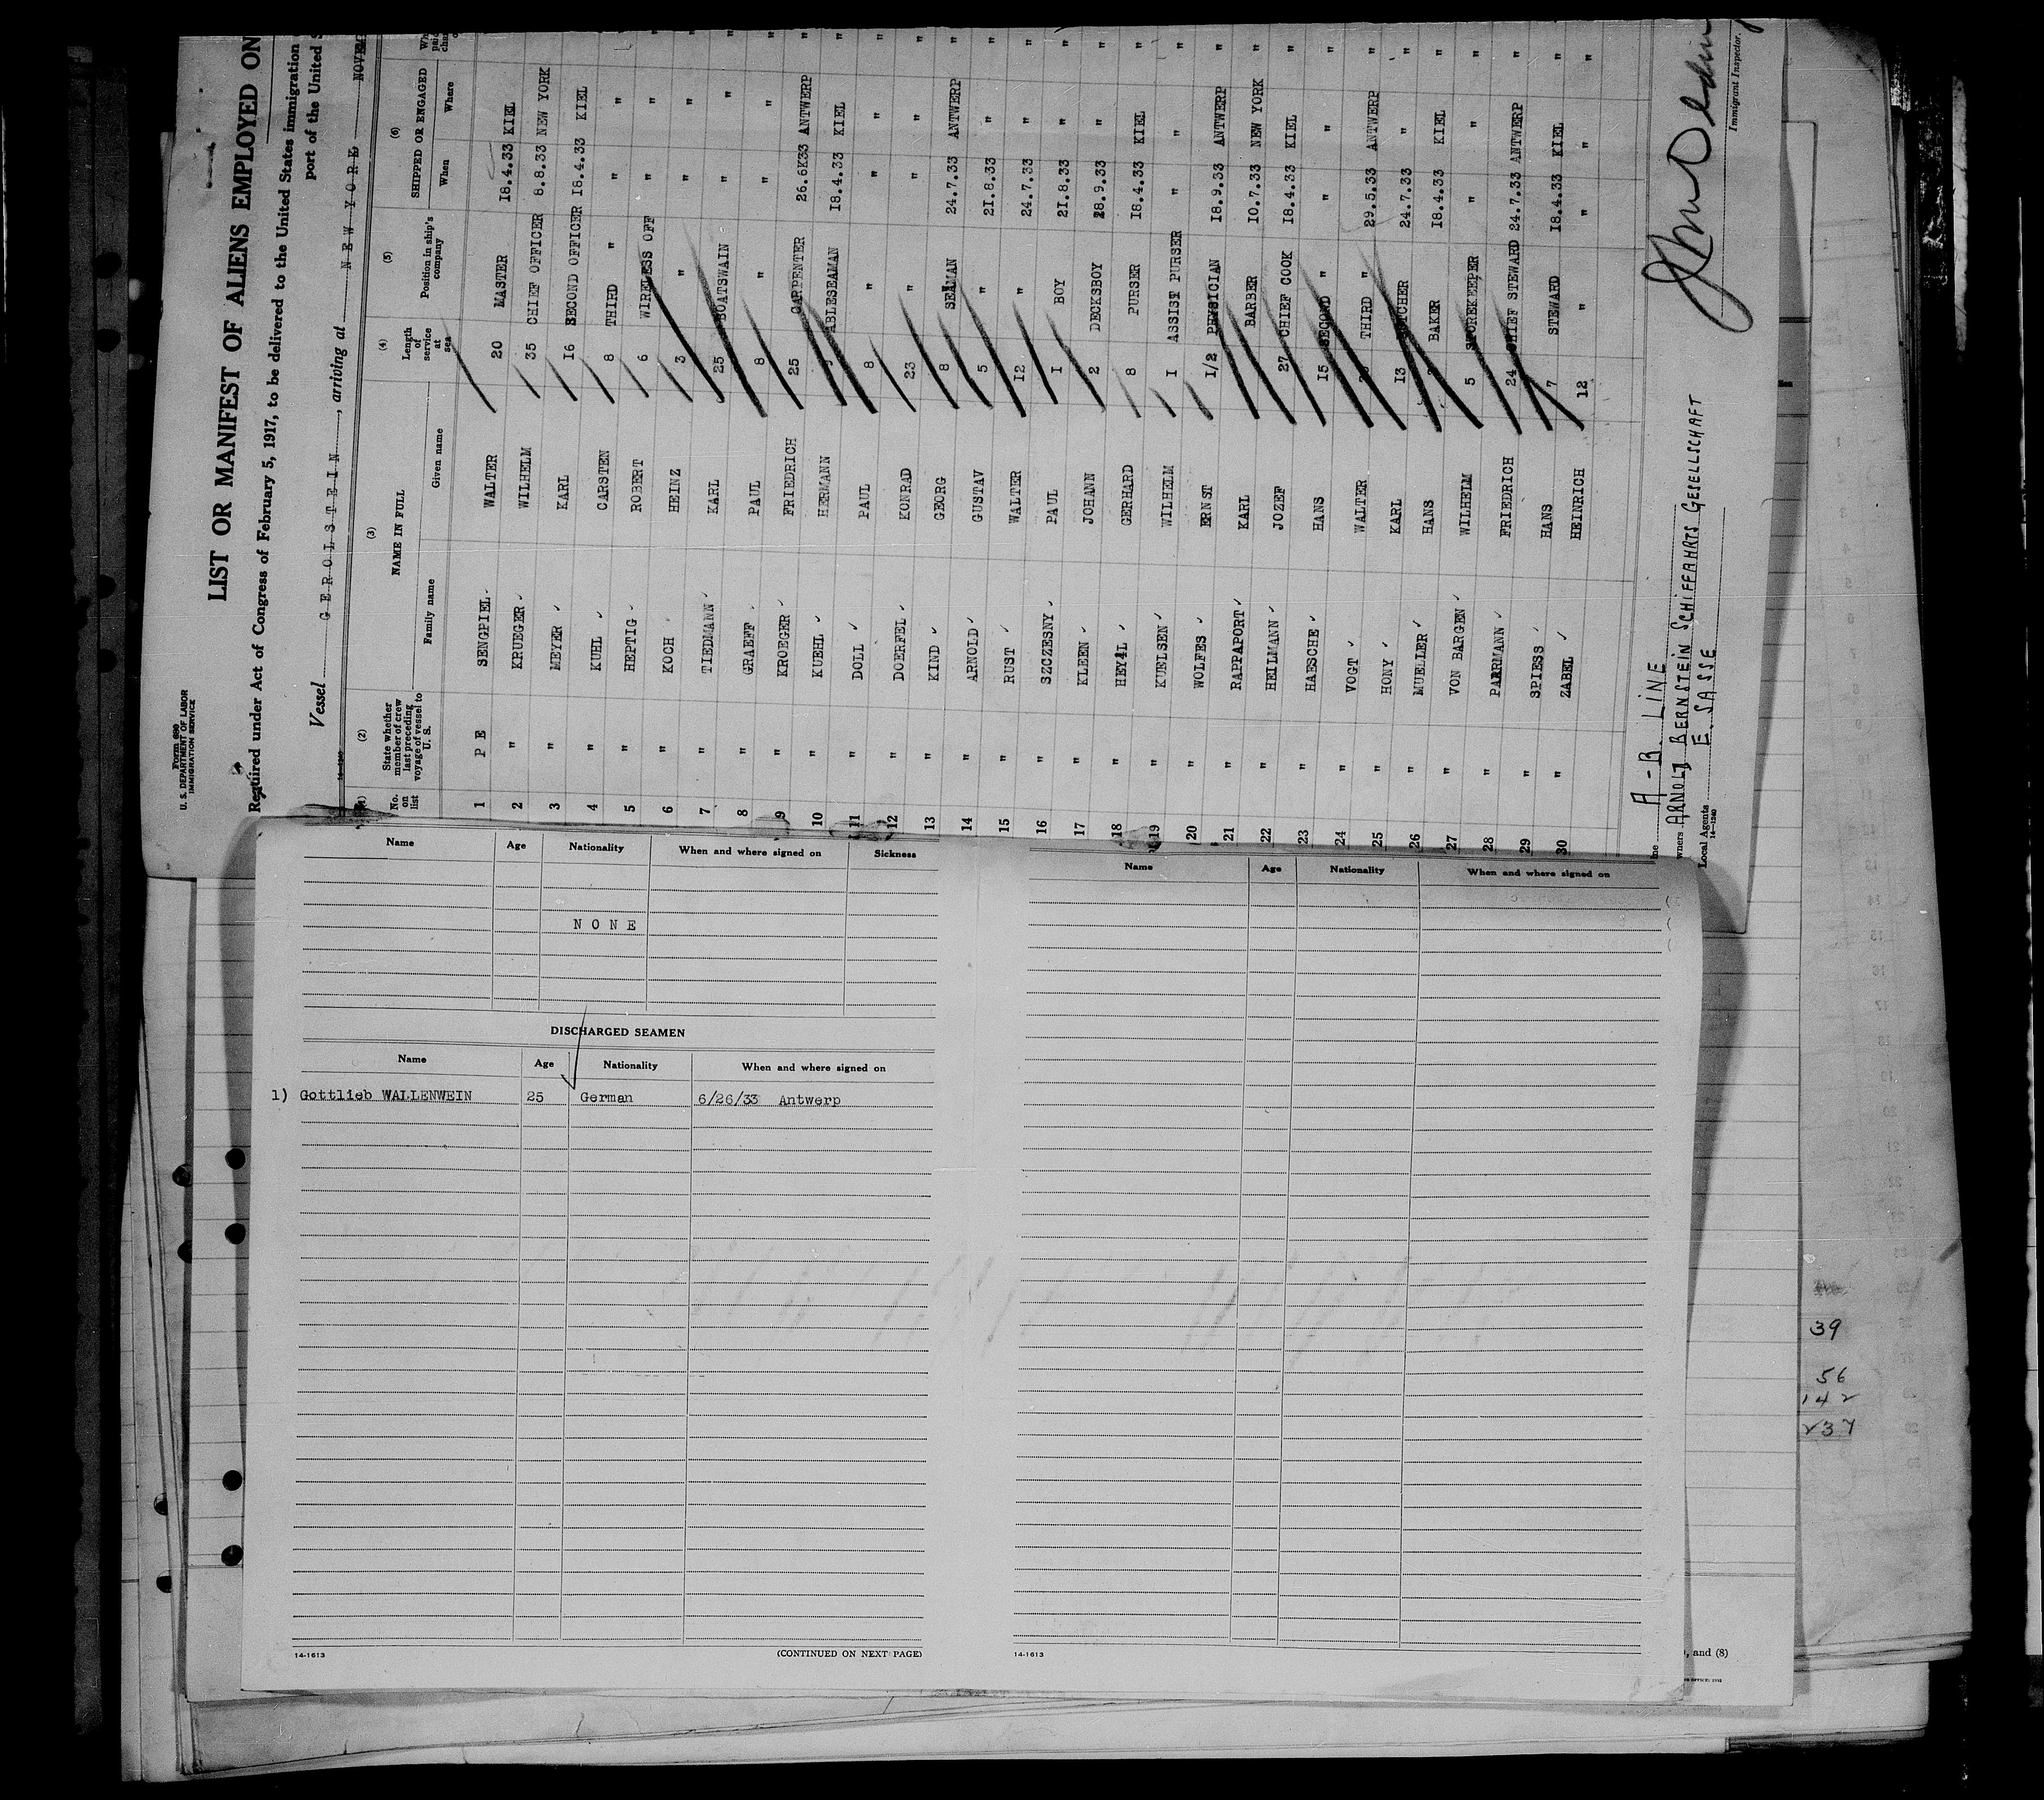 Form 680
U. S. DEPARTMENT OF LABOR
IMMIGRATION SERVICE
LIST OR MANIFEST OF ALIENS EMPLOYED ON
Required under Act of Congress of February 5, 1917, to be delivered to the United States immigration
port of the United S
Vessel G E R O L S T E I N, arriving at N E W Y O R K NOVEM
(2) (3) (4) (5) (6)
No. on list State whether member of crew last preceding voyage of vessel to U. S. NAME IN FULL Family name Given name Length of service at sea Position in ship's company SHIPPED OR ENGAGED When Where
1 P E SENGPIEL WALTER 20 MASTER 18.4.33 KIEL "
2 " KRUEGER WILHELM 35 CHIEF OFFICER 8.8.33 NEW YORK
3 " MEYER KARL 16 SECOND OFFICER 18.4.33 KIEL "
4 " KUHL CARSTEN 8 THIRD " " " "
5 " HEPTIG ROBERT 6 WIRELESS OFF " " "
6 " KOCH HEINZ 3 " " " "
7 " TIEDMANN KARL 25 BOATSWAIN " " "
8 " GRAEFF PAUL 8 " " " "
9 " KROEGER FRIEDRICH 25 CARPENTER 26.6K33 ANTWERP "
10 " KUEHL HERMANN 9 ABLESEAMAN 18.4.33 KIEL "
11 " DOLL PAUL 8 " " " "
12 " DOERFEL KONRAD 23 " " " "
13 " KIND GEORG 8 SEAMAN 24.7.33 ANTWERP "
14 " ARNOLD GUSTAV 5 " 21.8.33 " "
15 " RUST WALTER 12 " 24.7.33 " "
16 " SZCZESNY PAUL 1 BOY 21.8.33 " "
17 " KLEEN JOHANN 2 DECKSBOY 18.9.33 " "
18 " GERHARD 8 PURSER 18.4.33 KIEL "
19 " KUELSEN WILHELM 1 ASSIST PURSER " " "
20 " WOLFES ERNST 1/2 PHYSICIAN 18.9.33 ANTWERP "
21 " RAPPAPORT KARL BARBER 10.7.33 NEW YORK "
22 " HEILMANN JOZEF 27 CHIEF COOK 18.4.33 KIEL "
23 " HAESCHE HANS 15 SECOND " " " "
24 " VOGT WALTER THIRD " 29.5.33 ANTWERP "
25 " HONY KARL 13 BUTCHER 24.7.33 " "
26 " MUELLER HANS BAKER 18.4.33 KIEL "
27 " VON BARGEN WILHELM 5 STOREKEEPER " " "
28 " PAARMANN FRIEDRICH 24 CHIEF STEWARD 24.7.33 ANTWERP "
29 " SPIESS HANS 7 STEWARD 18.4.33 KIEL "
30 " ZABEL HEINRICH 12 " " " "
A-B. LINE
wners ARNOLD BERNSTEIN SCHIFFAHRTS GESELLSCHAFT
Local Agents E. SASSE
14-1240
Immigrant Inspector.
Name Age Nationality When and where signed on Sickness
N O N E
DISCHARGED SEAMEN
Name Age Nationality When and where signed on
1) Gottlieb WALLENWEIN 25 German 6/26/33 Antwerp
14-1613 (CONTINUED ON NEXT PAGE)
Name Age Nationality When and where signed on
14-1613
, and (8)
39
56
142
237